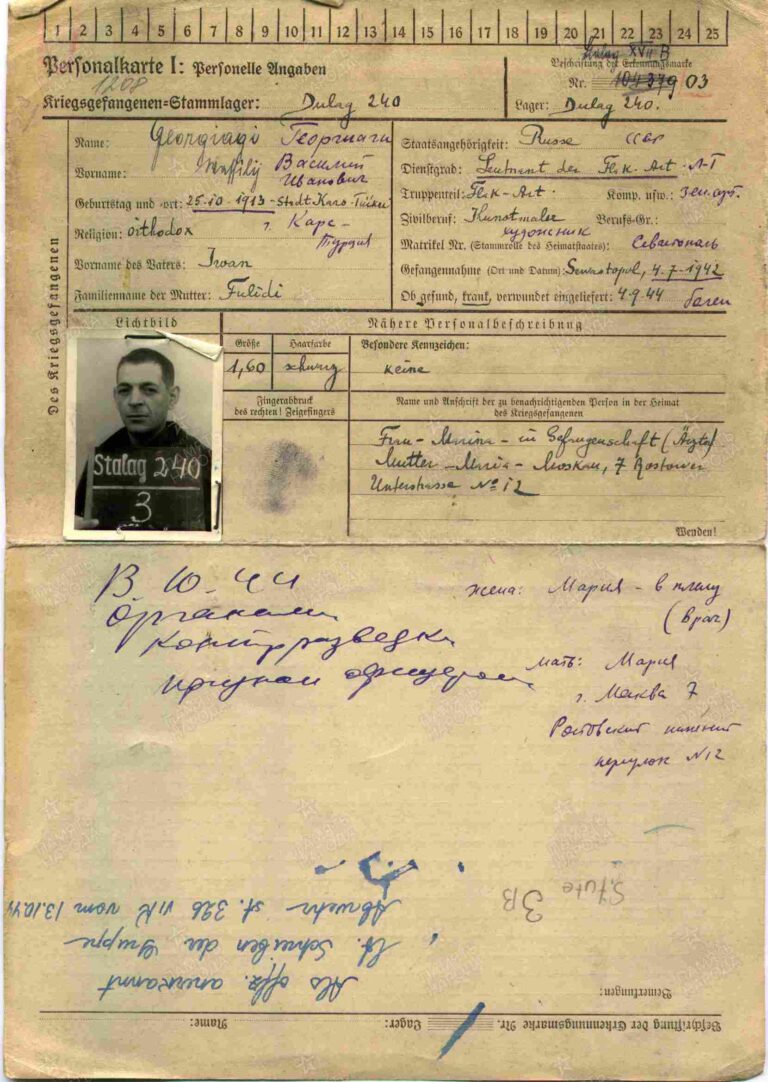 1 2 3 4 5 6 7 8 9 10 11 12 13 14 15 16 17 18 19 20 21 22 23 24 25
Personalkarte I: Personelle Angaben
1208
Kriegsgefangenen=Stammlager: Dulag 240
Stalag XVII B
Beschriftung der Erkennungsmarke
Nr. 104379 03
Lager: Dulag 240.
Des Kriegsgefangenen
Name: Georgiagi
Vorname: Wassily Василий
Иванович
Geburtstag und =ort: 25.10.1913 - Stadt Kars-Türkei
г. Карс-
Турция
Religion: orthodox
Vorname des Vaters: Iwan
Familienname der Mutter: Fulidi
Staatsangehörigkeit: Russe СССР
Dienstgrad: Leutnant der Flak-Art. Л-Т
Truppenteil: Flak-Art. Komp. usw.: Зен.арт.
Zivilberuf: Kunstmaler Berufs-Gr.:
художник
Matrikel Nr. (Stammrolle des Heimatstaates): Севастополь
Gefangennahme (Ort und Datum): Sewastopol, 4.7.1942
Ob gesund, krank, verwundet eingeliefert: 4.9.44
Lichtbild
Stalag 240
3
Nähere Personalbeschreibung
Größe Haarfarbe Besondere Kennzeichen:
1,60 schwarz keine
Fingerabdruck
des rechten! Zeigefingers
Name und Anschrift der zu benachrichtigenden Person in der Heimat
des Kriegsgefangenen
Frau - Marina - in Gefangenschaft (Ärzte)
Mutter - Maria - Moskau, 7 Rostower
Unterstrasse № 12
Wenden!
В 10-44
органами
контрразведки
признан офицером
жена: Мария - в плену
(врач)
мать: Мария
г. Москва 7
Ростовский нижний
переулок N12
Beschriftung der Erkennungsmarke Nr. Lager: Name:
Bemerkungen:
Als offz. anerkannt
lt. Schreiben der Gruppe
Abwehr st. 326 VIK vom 13.10.44
3B